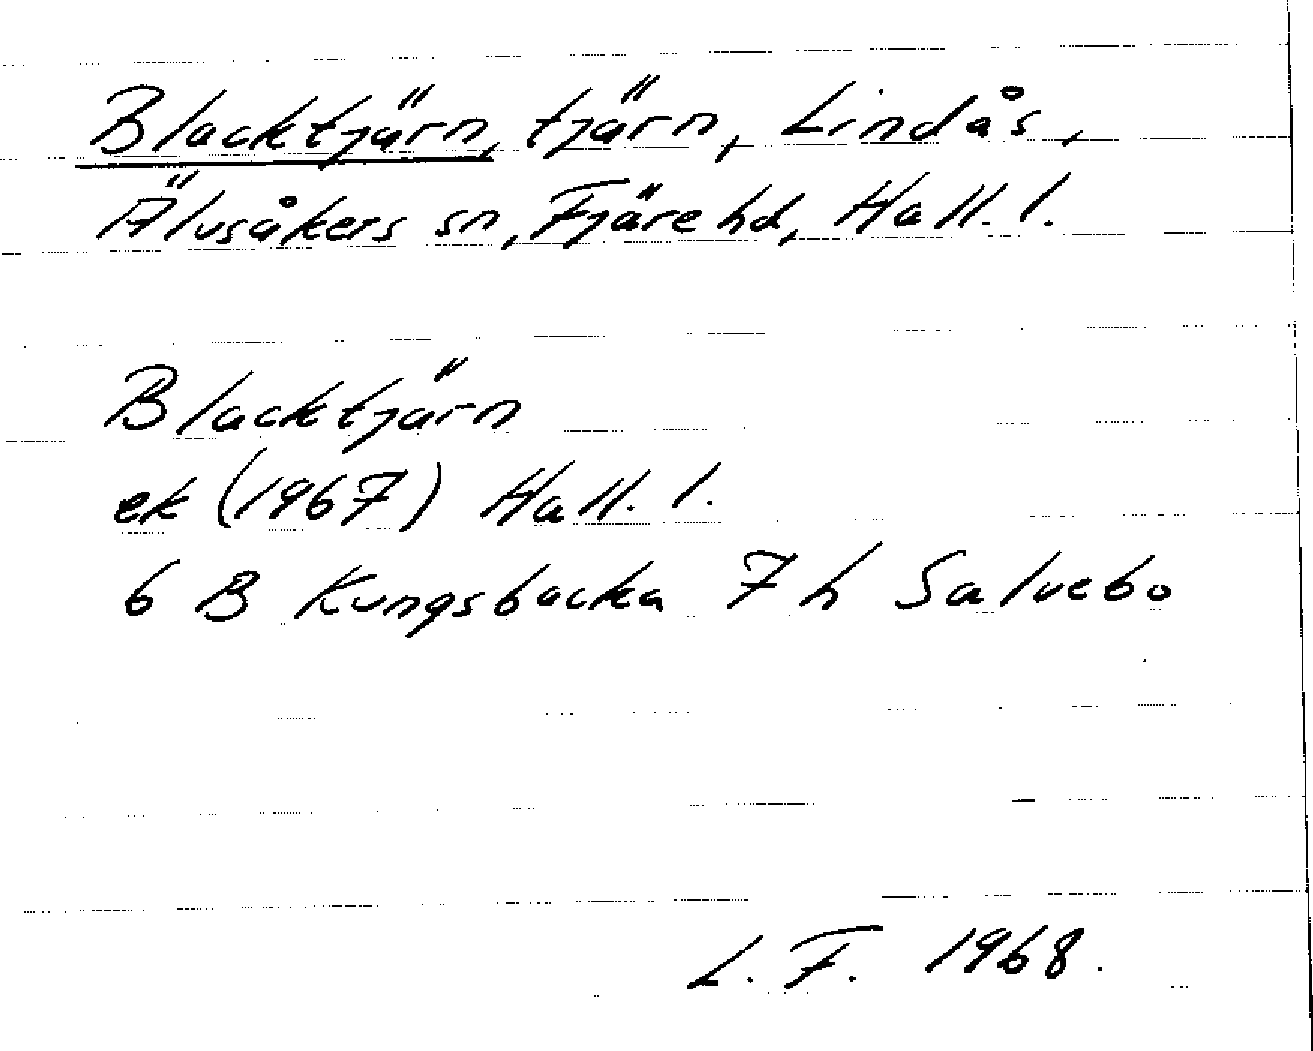 Blacktjärn, tjärn, Lindås,
Älvsåkers sn, Fjäre hd, Hall. l.
Blacktjärn
ek (1967) Hall. l.
6 B Kungsbacka 7 h Salvebo
L. F. 1968.